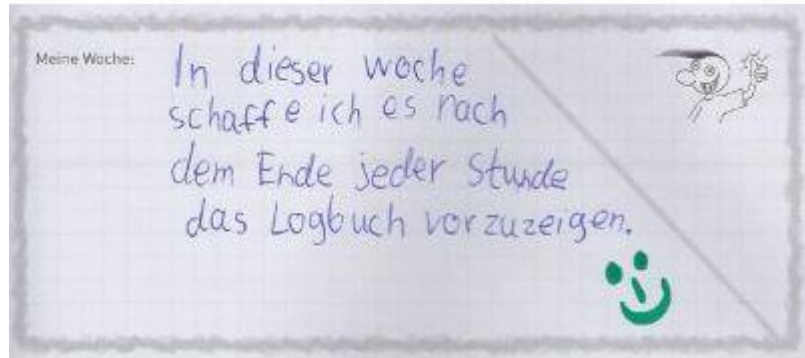 Meine Woche:
In dieser woche
schaffe ich es nach
dem Ende jeder Stunde
das Logbuch vorzuzeigen.